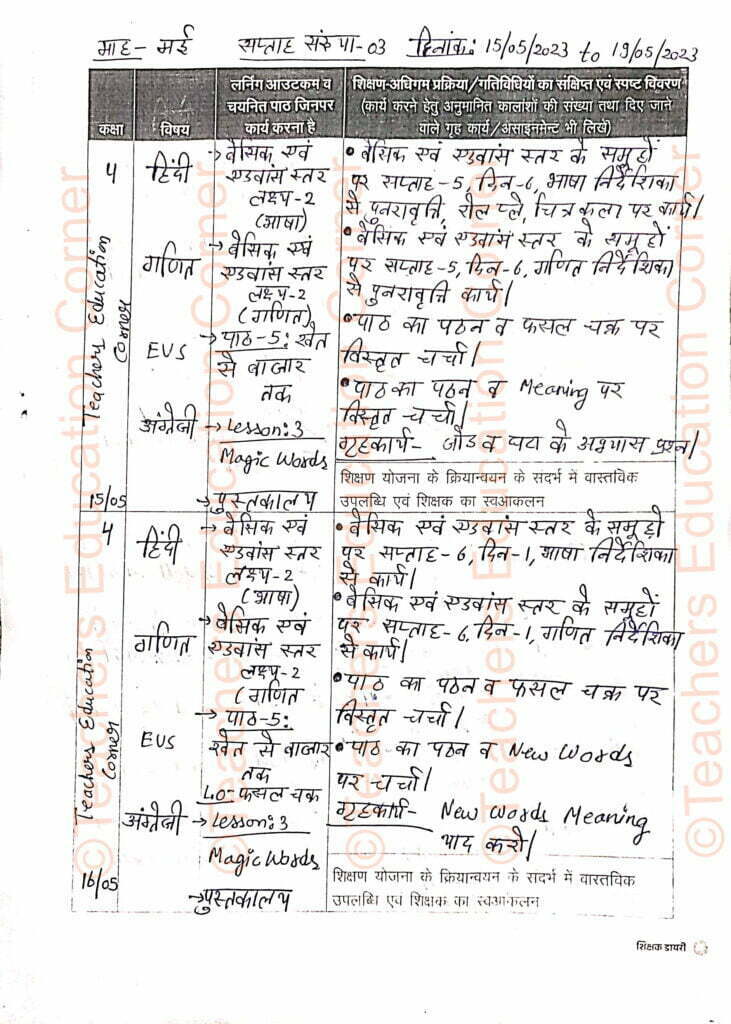 माह- मई सप्ताह संख्या-03 दिनांक: 15/05/2023 to 19/05/2023
कक्षा
विषय
लर्निंग आउटकम व
चयनित पाठ जिनपर
कार्य करना है
शिक्षण-अधिगम प्रक्रिया/गतिविधियों का संक्षिप्त एवं स्पष्ट विवरण
(कार्य करने हेतु अनुमानित कालांशों की संख्या तथा दिए जाने
वाले गृह कार्य/असाइनमेंट भी लिखें)
4
15/05
Teachers Education
Corner
हिंदी
→ बेसिक एवं
एडवांस स्तर
लक्ष्य-2
(भाषा)
• बेसिक एवं एडवांस स्तर के समूहों
पर सप्ताह-5, दिन-6, भाषा निर्देशिका
से पुनरावृत्ति, रोल प्ले, चित्रकला पर कार्य।
गणित
→ बेसिक एवं
एडवांस स्तर
लक्ष्य-2
(गणित)
• बेसिक एवं एडवांस स्तर के समूहों
पर सप्ताह-5, दिन-6, गणित निर्देशिका
से पुनरावृत्ति कार्य।
EVS
→ पाठ-5: खेत
से बाजार
तक
• पाठ का पठन व फसल चक्र पर
विस्तृत चर्चा।
अंग्रेजी
→ Lesson:3
Magic Words
→ पुस्तकालय
• पाठ का पठन व Meaning पर
विस्तृत चर्चा।
गृहकार्य- जोड व घटा के अभ्यास प्रश्न।
शिक्षण योजना के क्रियान्वयन के संदर्भ में वास्तविक
उपलब्धि एवं शिक्षक का स्वआकलन
4
16/05
Teachers Education
Corner
हिंदी
→ बेसिक एवं
एडवांस स्तर
लक्ष्य-2
(भाषा)
• बेसिक एवं एडवांस स्तर के समूहों
पर सप्ताह-6, दिन-1, भाषा निर्देशिका
से कार्य।
गणित
→ बेसिक एवं
एडवांस स्तर
लक्ष्य-2
(गणित
• बेसिक एवं एडवांस स्तर के समूहों
पर सप्ताह-6, दिन-1, गणित निर्देशिका
से कार्य।
EVS
→ पाठ-5:
खेत से बाजार
तक
LO-फसल चक्र
• पाठ का पठन व फसल चक्र पर
विस्तृत चर्चा।
अंग्रेजी
→ Lesson:3
Magic Words
→ पुस्तकालय
• पाठ का पठन व New Words
पर चर्चा।
गृहकार्य- New Words Meaning
याद करो।
शिक्षण योजना के क्रियान्वयन के सदर्भ में वास्तविक
उपलब्धि एवं शिक्षक का स्वआकलन
शिक्षक डायरी
©Teachers Education Corner
©Teachers Education Corner
©Teachers Education Corner
©Teachers Education Corner
©Teachers Education Corner
©Teachers Education Corner